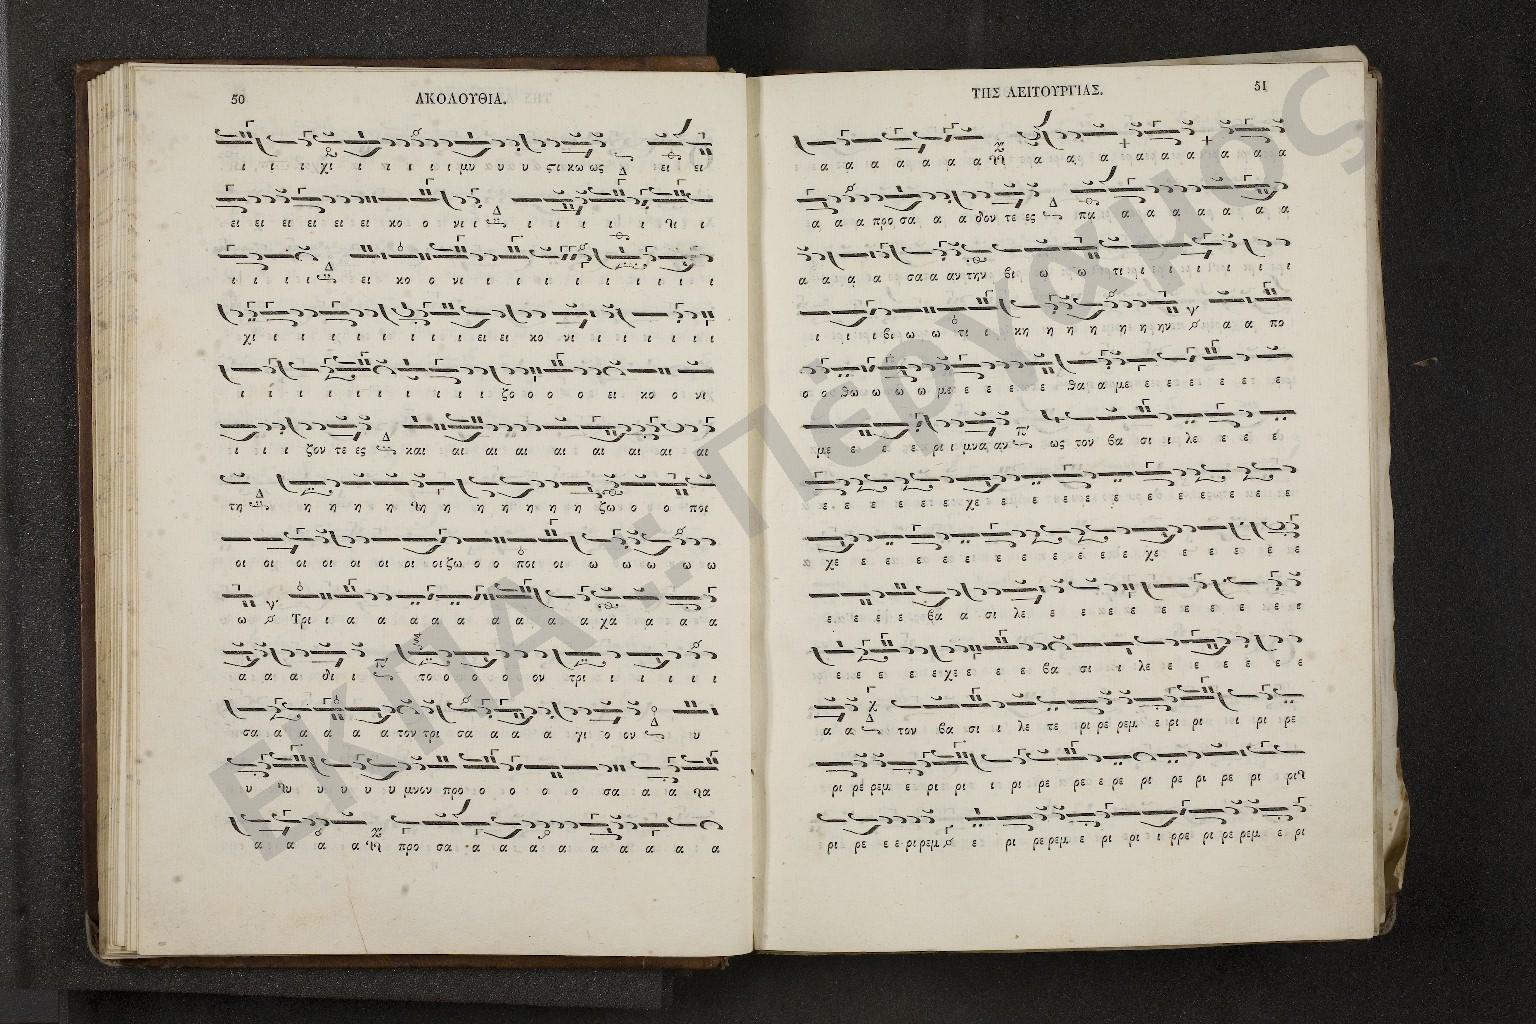 50
ΑΚΟΛΟΥΘΙΑ.
ι ι χι ι ι ι ι ι μυ υ υ ςι κω ως ει ει
ει ει ει ει ει ει κο ο νι ι ι ι ι ι ι ι ι
ι ι ι ι ει κο ο νι ι ι ι ι ι ι ι ι
χι ι ι ι ι ι ι ι ι ει ει κο νι ι ι ι ι ι
ι ι ι ι ι ι ι ι ι ι ζο ο ο ο ει κο ο νι
ι ι ι ζον τε ες και αι αι αι αι αι αι αι αι
τη η η η η η η η η η η ζω ο ο ποι
οι οι οι οι οι οι ρι οι ζω ο ο ποι οι ω ω ω ω ω
ω Τρι ι α α α α α α α α α χα α α α
α α α δι ι το ο ο ο ο ον τρι ι ι ι ι ι
σα α α α α α τον τρι σα α α α γι ο ον υ
υ υ υ υ υ υ μνον προ ο ο ο ο ο σα α α
α α α α προ σα α α α α α α α α α
51
ΤΗΣ ΛΕΙΤΟΥΡΓΙΑΣ.
α α α α α α α α α α α α α α α α α
α α α προ σα α α δον τε ες πα α α α α α α α
α α α α σα α αν την βι ω ω τι ι ι ι ι ι ι ι
ι ι ι βι ω ω τι ι κη η η η η η ην α α πο
ο ο θω ω ω ω με ε ε ε ε θα α με ε ε ε ε ε ε
με ε ε ε ρι ι μνα αν ως τον βα σι ι λε ε ε ε
ε ε ε ε ε ε χε ε ε ε ε ε ε ε ε ε ε ε
χε ε ε ε ε ε ε ε ε ε ε ε χε ε ε ε ε ε
ε ε ε ε βα α σι λε ε ε ε ε ε ε ε ε ε ε
ε ε ε ε ε χε ε ε ε βα σι ι λε ε ε ε ε ε ε
α α τον βα σι ι λε τε ρι ρε ρεμ ε ρι ρι ι ρι ρε
ρι ρε ρεμ ε ρι ρι ι ρι ρε ρε ε ρε ρι ρε ρι ρε ρι ρι
ρι ρε ε ε ρι ρεμ ε ρι ρε ρεμ ε ρι ρι ι ρρε ρι ρε ρεμ ε ρι
ΕΚΠΑ :: Πέργαμος